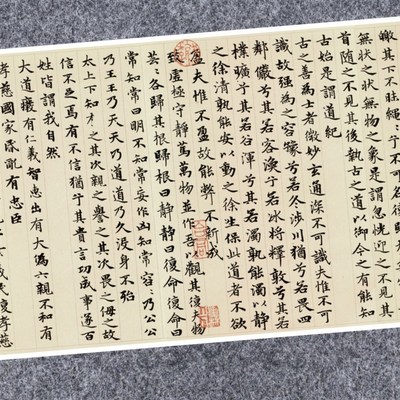 皦其下不昧繩〻兮不可名復歸
無狀之狀無物之象是謂忽恍迎之不見其
首隨之不見其後執古之道以御今之有能知
古始是謂道紀
古之善為士者微妙玄通深不可識夫惟不可
識故強為之容豫兮若冬涉川猶兮若畏四
鄰儼兮其若容渙兮若冰將釋敦兮其若
樸曠兮其若谷渾兮其若濁孰能濁以靜
之徐清孰能安以動之徐生保此道者不欲
盈夫惟不盈故能弊不新成
致虛極守靜篤萬物並作吾以觀其復夫物
芸〻各歸其根歸根曰靜靜曰復命復命曰
常知常曰明不知常妄作凶知常容〻乃公公
乃王王乃天天乃道道乃久沒身不殆
太上下知有之其次親之譽之其次畏之侮之故
信不足焉有不信猶兮其貴言功成事遂百
姓皆謂我自然
大道癈有仁義智惠出有大偽六親不和有
孝慈國家昏亂有忠臣
民復孝慈